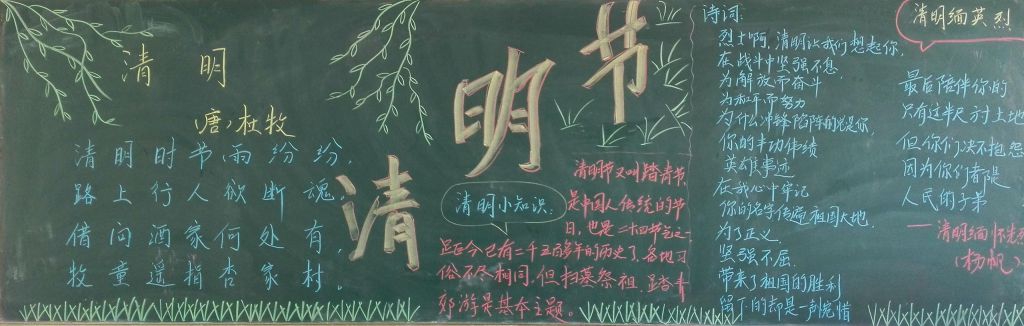 清明
(唐)杜牧
清明时节雨纷纷,
路上行人欲断魂。
借问酒家何处有,
牧童遥指杏家村。
清明节
清明小知识:
清明节又叫踏青节,
是中国人传统的节
日,也是二十四节气之一
距今已有二千五百多年的历史了,各地习
俗不尽相同,但扫墓祭祖、踏青
郊游是基本主题。
诗词:
烈士啊,清明让我们想起你,
在战斗中坚强不息,
为解放而奋斗
为和平而努力
为什么冲锋陷阵的总是你,
你的丰功伟绩
英雄事迹
在我心中牢记
你的名字传遍祖国大地,
为了正义,
坚强不屈,
带来了祖国的胜利
留下的却是一声惋惜
清明缅英烈
最后陪伴你的
只有这半尺讨土地
但你们决不抱怨
因为你们都限
人民的子弟
——清明缅怀先烈
(杨帆)